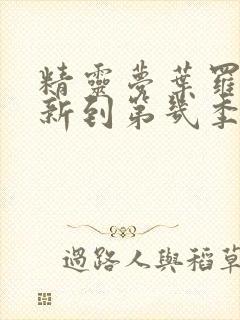 精靈夢葉羅
新到第幾季
過路人與稻草